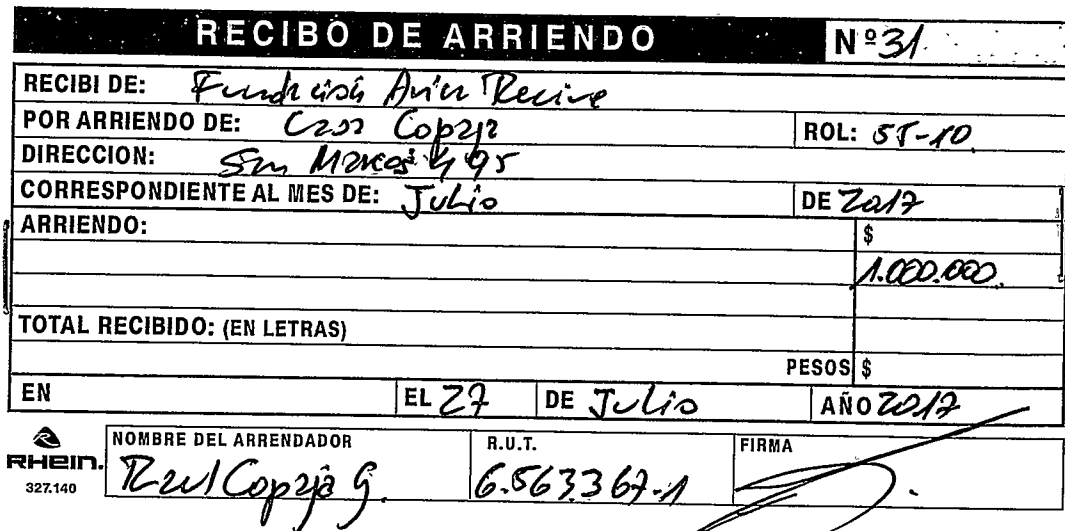 RECIBO DE ARRIENDO Nº 31
RECIBI DE: Fundación
POR ARRIENDO DE: Casa Copaja ROL: 55-10
DIRECCION: San Marcos 495
CORRESPONDIENTE AL MES DE: Julio DE 2017
ARRIENDO: $
1.000.000.
TOTAL RECIBIDO: (EN LETRAS)
PESOS $
EN EL 27 DE Julio AÑO 2017
NOMBRE DEL ARRENDADOR R.U.T. FIRMA
RHein. Raul Copaja G. 6.563.367-1
327.140